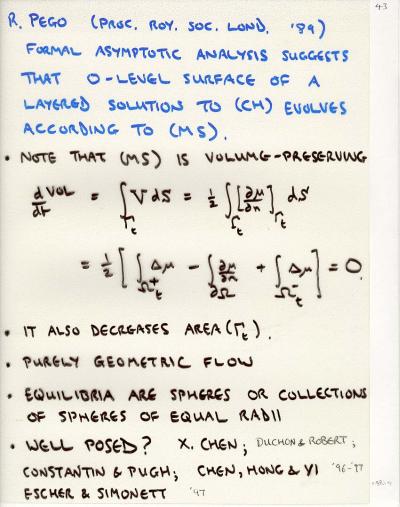 43
R. PEGO (PROC. ROY. SOC. LOND. '89)
FORMAL ASYMPTOTIC ANALYSIS SUGGESTS
THAT 0-LEVEL SURFACE OF A
LAYERED SOLUTION TO (CH) EVOLVES
ACCORDING TO (MS).
• NOTE THAT (MS) IS VOLUME-PRESERVING
d/dt VOL = ∫_{Γ_t} V dS = ½ ∫_{Γ_t} [∂μ/∂n]_{Γ_t} dS
= ½ [ ∫_{Ω_t^+} Δμ - ∫_{∂Ω} ∂μ/∂n + ∫_{Ω_t^-} Δμ ] = 0
• IT ALSO DECREASES AREA (Γ_t).
• PURELY GEOMETRIC FLOW
• EQUILIBRIA ARE SPHERES OR COLLECTIONS
OF SPHERES OF EQUAL RADII
• WELL POSED? X. CHEN; DUCHON & ROBERT;
CONSTANTIN & PUGH; CHEN, HONG & YI '96-'97
ESCHER & SIMONETT '97